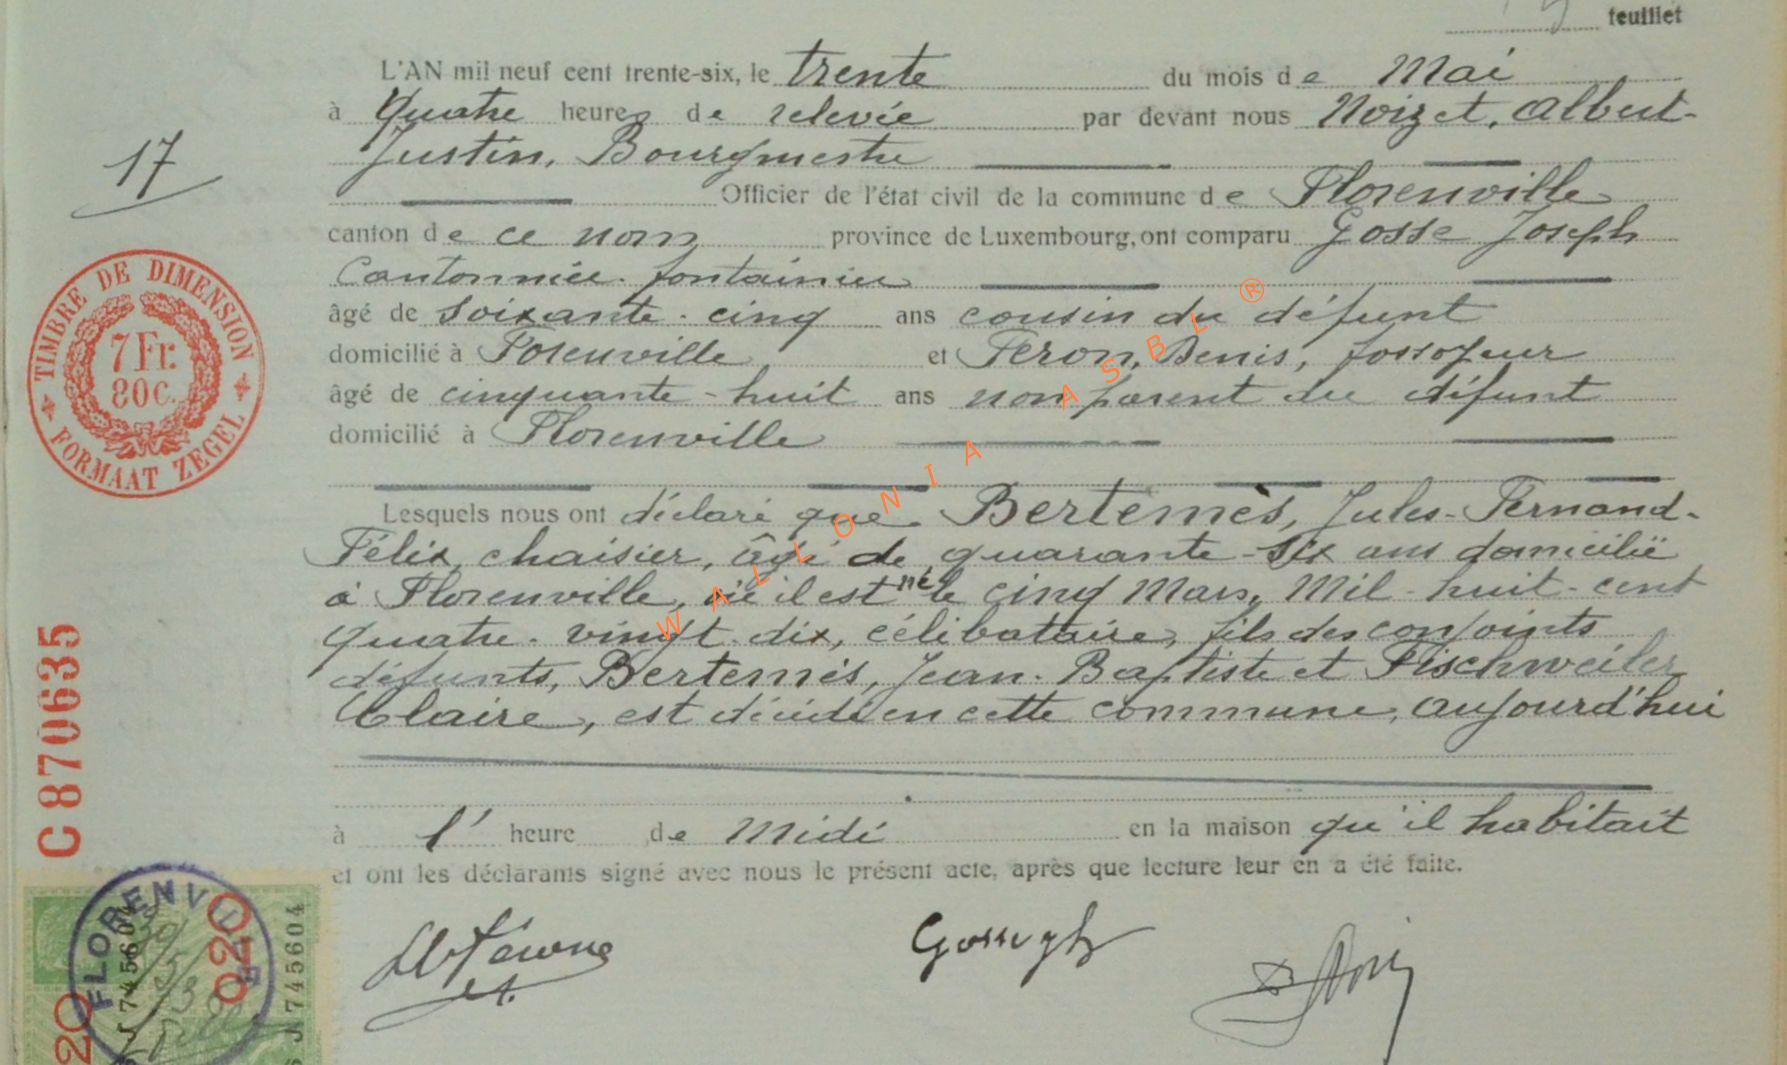 feuillet
L'AN mil neuf cent trente-six, le trente du mois de Mai
à Quatre heures de relevée par devant nous Noizet, Albert-
Justin, Bourgmestre
17
Officier de l'état civil de la commune de Florenville
canton de ce nom province de Luxembourg, ont comparu Gosse Joseph
Cantonnier-fontainier
âgé de soixante-cinq ans cousin du défunt
domicilié à Florenville et Feron, Denis, fossoyeur
âgé de cinquante-huit ans non parent du défunt
domicilié à Florenville
TIMBRE DE DIMENSION
7 Fr.
80 C.
FORMAAT ZEGEL
Lesquels nous ont déclaré que Bertemès, Jules-Fernand-
Félix, chaisier, âgé de quarante-six ans domicilié
à Florenville, où il est né le cinq Mars, Mil-huit-cent
quatre-vingt-dix, célibataire, fils des conjoints
défunts, Bertemès, Jean-Baptiste et Fischweiler
Claire, est décédé en cette commune, aujourd'hui
C870635
à l' heure de Midi en la maison qu'il habitait
et ont les déclarants signé avec nous le présent acte, après que lecture leur en a été faite.
FLORENVILLE
020
20
J 745604
J 745604
WALLONIA ASBL ®